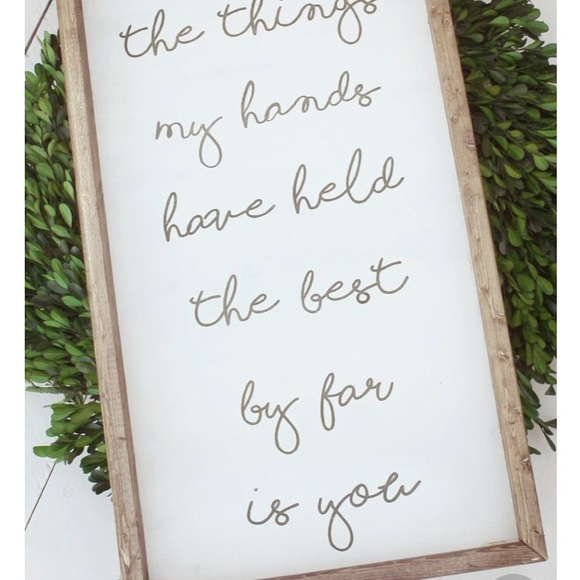 the things
my hands
have held
the best
by far
is you